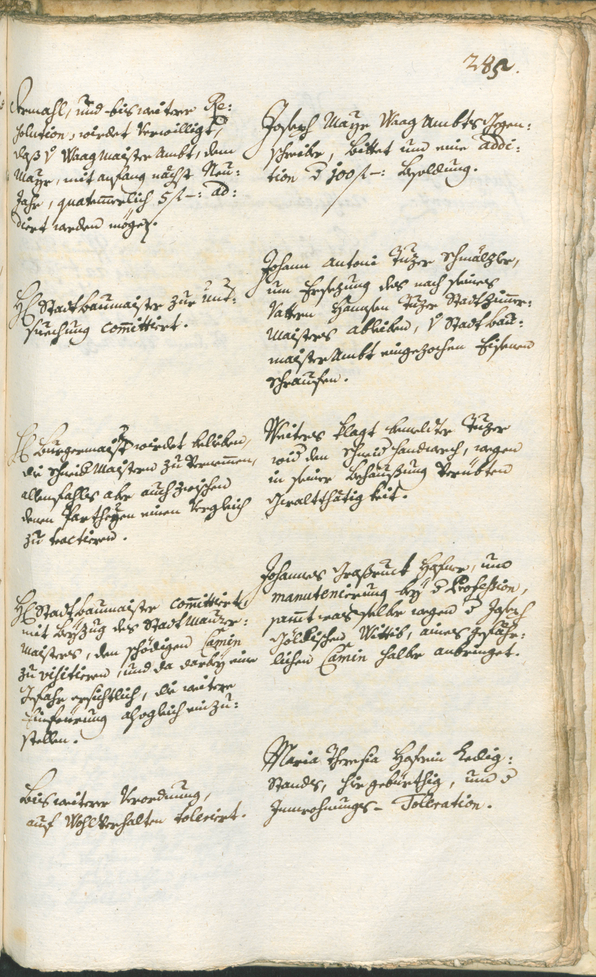 285.
Ermahl, und bis weitere Re:
solution, wirdet verwilligt,
daß v Waagmaister Ambt, dem
Mayr, mit anfang nächst Neu:
Jahr, quatemerlich 5 f –: ad:
diert werden möge.
H Stadtbaumaister zur unt:
suechung comittiert.
H Burgermaister wirdet belieben,
die Maistern zu vernemmen,
allenfahls aber auch zwischen
denen Partheyen einen Vergleich
zu tractieren.
H Stadtbaumaister committiert,
mit Beyzug des Stadt Maurer:
Maisters, den schödigen Camin
zu visitieren, und da darbey eine
Gefahr ersichtlich, die weitere
Einfeurung alsogleich einzu:
stellen.
Bis weitere Verordnung,
auf Wohlverhalten toleriert.
Joseph Mayr Waag Ambts Gegen:
schreiber, bittet um eine addi:
tion d 100 f –: Besoldung.
Johann Antoni Tuzer Schmälzler,
um Ersezung des nach seines
Vattern Hannsen Tuzer Stadt Zimmer:
Maisters ableiben, v Stadt bau:
maister Ambt eingezochen Eisenen
Schraufen.
Weiters klagt bemelter Tuzer
wider den Handwerch, wegen
in seiner Behaußung verübten
Gewaltthätigkeit.
Johannes Hafner, um
manutenierung bey d Profession,
sammt was selber wegen d Joseph
Wittib, eines gefähr:
lichen Camin halber anbringet.
Maria Theresia Hoferin Ledig:
Stands, hie gebürthig, um d
Innwohnungs- Tolleration.